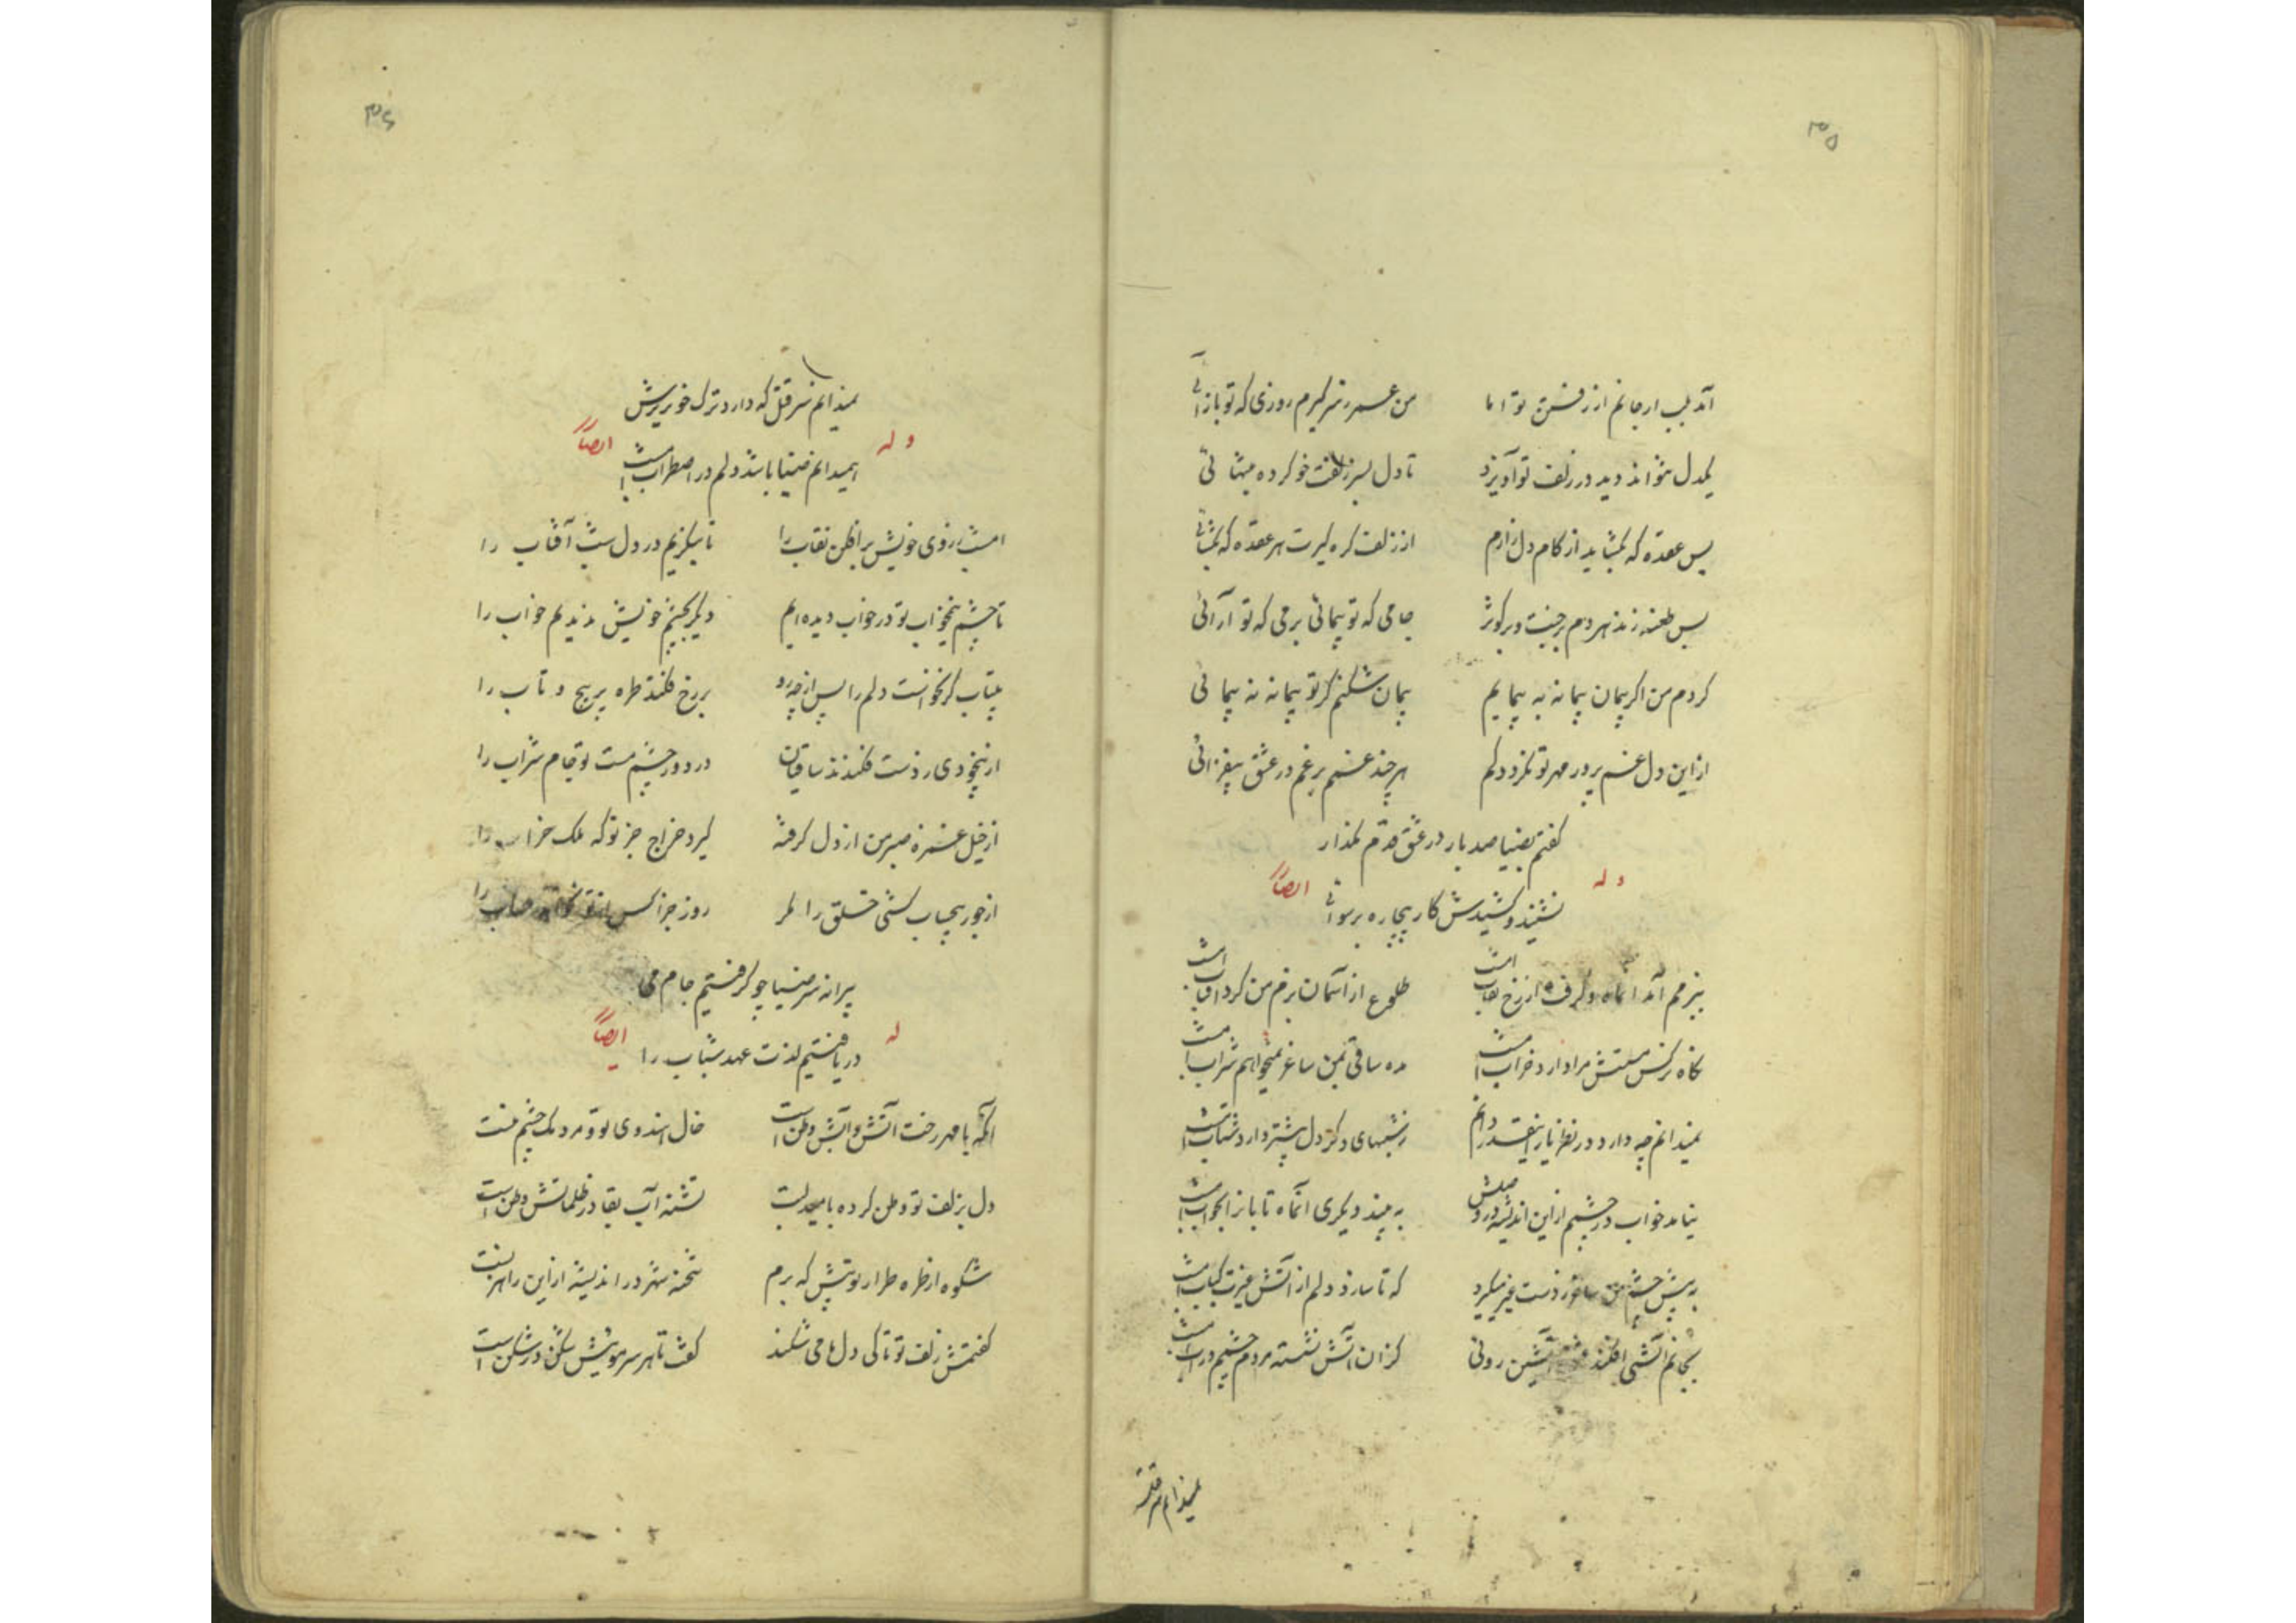 ۳۵
آمد بلب ار جانم از رفتن تو اما من عمر ز سر گیرم روزی که تو باز آئی
یکدل نتواند دید در زلف تو آویزد تا دل بسر زلفت خو کرده
بس عقده که بگشاید از کام دل زارم از زلف گره گیرت هر عقده که بگشائی
بس طعنه زند هر دم بر جنت و بر کوثر جامی که تو پیمائی بزمی که تو آرائی
کردم من اگر پیمان پیمانه نه پیمایم پیمان شکنم گر تو پیمانه به پیمائی
از این دل غم پرور مهر تو نگردد کم هر چند غمم بر غم در عشق بیفزائی
گفتم بضیا صد بار در عشق قدم مگذار
وله ایضاً
نشنید و کشیدش کار بیچاره برسوائی
ببزمم آمد آنماه و گرفت از رخ نقاب امشب طلوع از آسمان بزم من کرد آفتاب امشب
نگاه نرگس مستش مرا دارد خراب امشب مده ساقی بمن ساغر نمیخواهم شراب امشب
نمیدانم چه دارد در نظر یار اینقدر دانم ز شبهای دگر دل بیشتر دارد شتاب امشب
نیاید خواب در چشمم از این اندیشه در وصلش به بیند دیگری آنماه تابانرا بخواب امشب
به پیش چشم من ساغر ز دست غیر میگیرد که تا سازد دلم از آتش غیرت کباب امشب
بجانم آتشی افکند آتشین روئی کز آن آتش نشسته مردم چشمم در آب امشب
نمیدانم سر قتل
۳۶
نمیدانم سر قتل که دارد ترک خونریزش
وله ایضاً
همیدانم ضیا باشد دلم در اضطراب امشب
امشب ز روی خویش برافکن نقاب را تا بنگریم در دل شب آفتاب را
تا چشم نیمخواب تو در خواب دیده‌ایم دیگر بچشم خویش ندیدیم خواب را
بیتاب گر نخواست دلم را پس از چه رو بر رخ فکند طره پر پیچ و تاب را
از بیخودی ز دست فکندند ساقیان در دور چشم مست تو جام شراب را
از خیل غمزه صبر من از دل گرفته گیرد خراج جز تو که ملک خراب را
از جور بیحساب کشی خلق را مگر روز جزا کس از تو نخواهد حساب را
پیرانه سر ضیا چو گرفتیم جام می
له ایضاً
دریافتیم لذت عهد شباب را
آنکه با مهر رخت آتش و آبش وطن است خال هندوی تو و مردمک چشم منست
دل بزلف تو وطن کرده بامید لبت تشنه آب بقا در ظلماتش وطن است
شکوه از طره طرار تو پیش که برم شحنه شهر در اندیشه از این راهزنست
گفتمش زلف تو تا کی دل ما می شکند گفت تا هر سر مویش شکن در شکن است